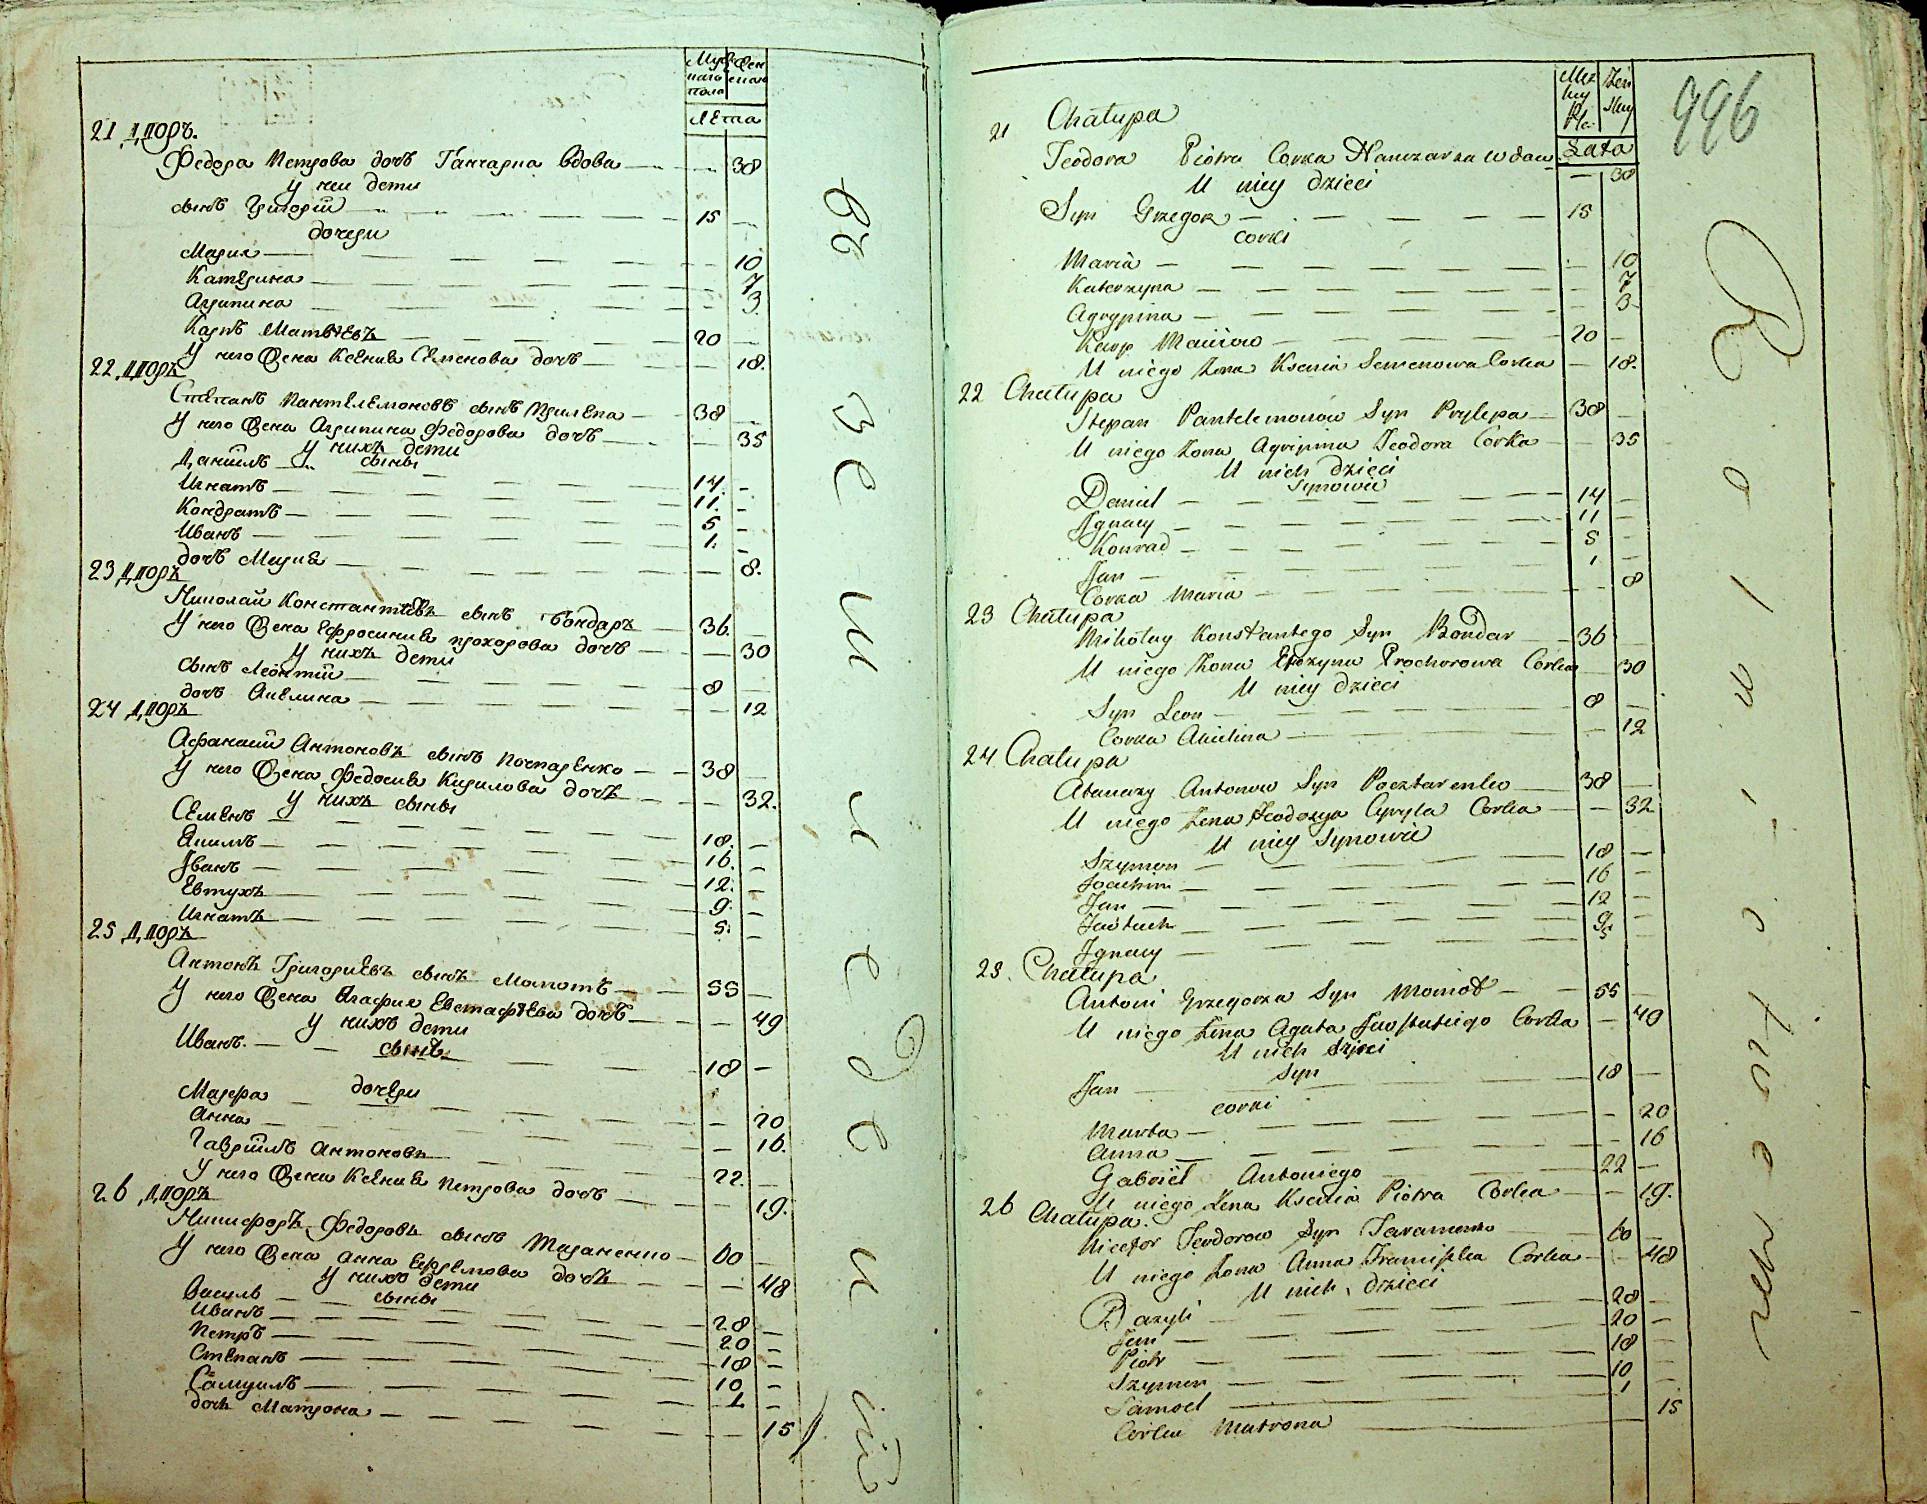 Мужскаго пола Женскаго
Лѣта
21 Дворъ.
Федора Петрова дочь Ганчарка вдова 38
у неи дети
сынъ Григорій 15
дочери
Мария 10
Катерина 7
Агрипина 3
Карпъ Матвѣевъ 20
У него Жена Ксения Семенова дочь 18.
22 Дворъ
Степанъ Пантелемоновъ сынъ Прилепа 38
У него Жена Агрипина Федорова дочь 35
У нихъ дети
сыны
Даніилъ 14.
Игнатъ 11.
Кондратъ 5
Иванъ 1.
дочь Мария 8.
23 Дворъ
Николай Константіевъ сынъ Бондаръ 36.
У него Жена Ефросиния Прохорова дочь 30
У нихъ дети
Сынъ Леонтій 8
дочь Акилина 12
24 Дворъ
Афанасій Антоновъ сынъ Почтаренко 38
У него Жена Федосия Кирилова дочь 32.
У нихъ сыны
Семенъ 18.
Якимъ 16.
Іванъ 12.
Евтухъ 9.
Игнатъ 5.
25 Дворъ
Антонъ Григориевъ сынъ Момотъ 55
У него Жена Агафия Евстафѣева дочь 49
У нихъ дети
сынъ
Иванъ. 18
дочери
Марфа 20
Анна 16.
Гавріилъ Антоновъ 22.
У него Жена Ксения Петрова дочь 19.
26 Дворъ
Никифоръ Федоровъ сынъ Тараненко 60
У него Жена Анна Ефремова дочь 48
У нихъ дети
сыны
Василь 28
Иванъ 20
Петръ 18
Степанъ 10
Самуилъ 1
дочь Матрона 15
Введениній
996
Męzkiy Płci Żeńskiy
Lata
21 Chałupa
Teodora Piotra Corka Hanczarka Wdowa 38
U niey dzieci
Syn Grzegorz 15
Corki
Maria 10
Katerzyna 7
Agrypina 3
Karp Maciiow 20
U niego Żona Ksenia Semenowa Corka 18.
22 Chałupa
Stepan Pantelemonow Syn Prylepa 38
U niego Żona Agripina Teodora Corka 35
U nich dzieci
Synowie
Daniel 14
Jgnacy 11
Konrad 5
Jan 1
Corka Maria 8
23 Chałupa
Mikołay Konstantego Syn Bondar 36
U niego Żona Efrozyna Prochorowa Corka 30
U niey dzieci
Syn Leon 8
Corka Akielina 12
24 Chałupa
Atanazy Antonow Syn Pocztarenko 38
U niego Żena Teodozya Cyryla Corka 32
U niey Synowie
Szymon 18
Joachim 16
Jan 12
Jewtuch 9
Jgnacy 5
25. Chałupa
Antoni Grzegorza Syn Momot 55
U niego Żena Agata Jewstafiego Corka 49
U nich dzieci
Syn
Jan 18
corki
Marta 20
Anna 16
Gabriel Antoniego 22
U niego Żena Ksenia Piotra Corka 19.
26 Chałupa.
Nicefor Teodorow Syn Taranenko 60
U niego Żona Anna Franciszka Corka 48
U nich dzieci
Bazyli 28
Jan 20
Piotr 18
Szymon 10
Samoel 1
Corka Matrona 15